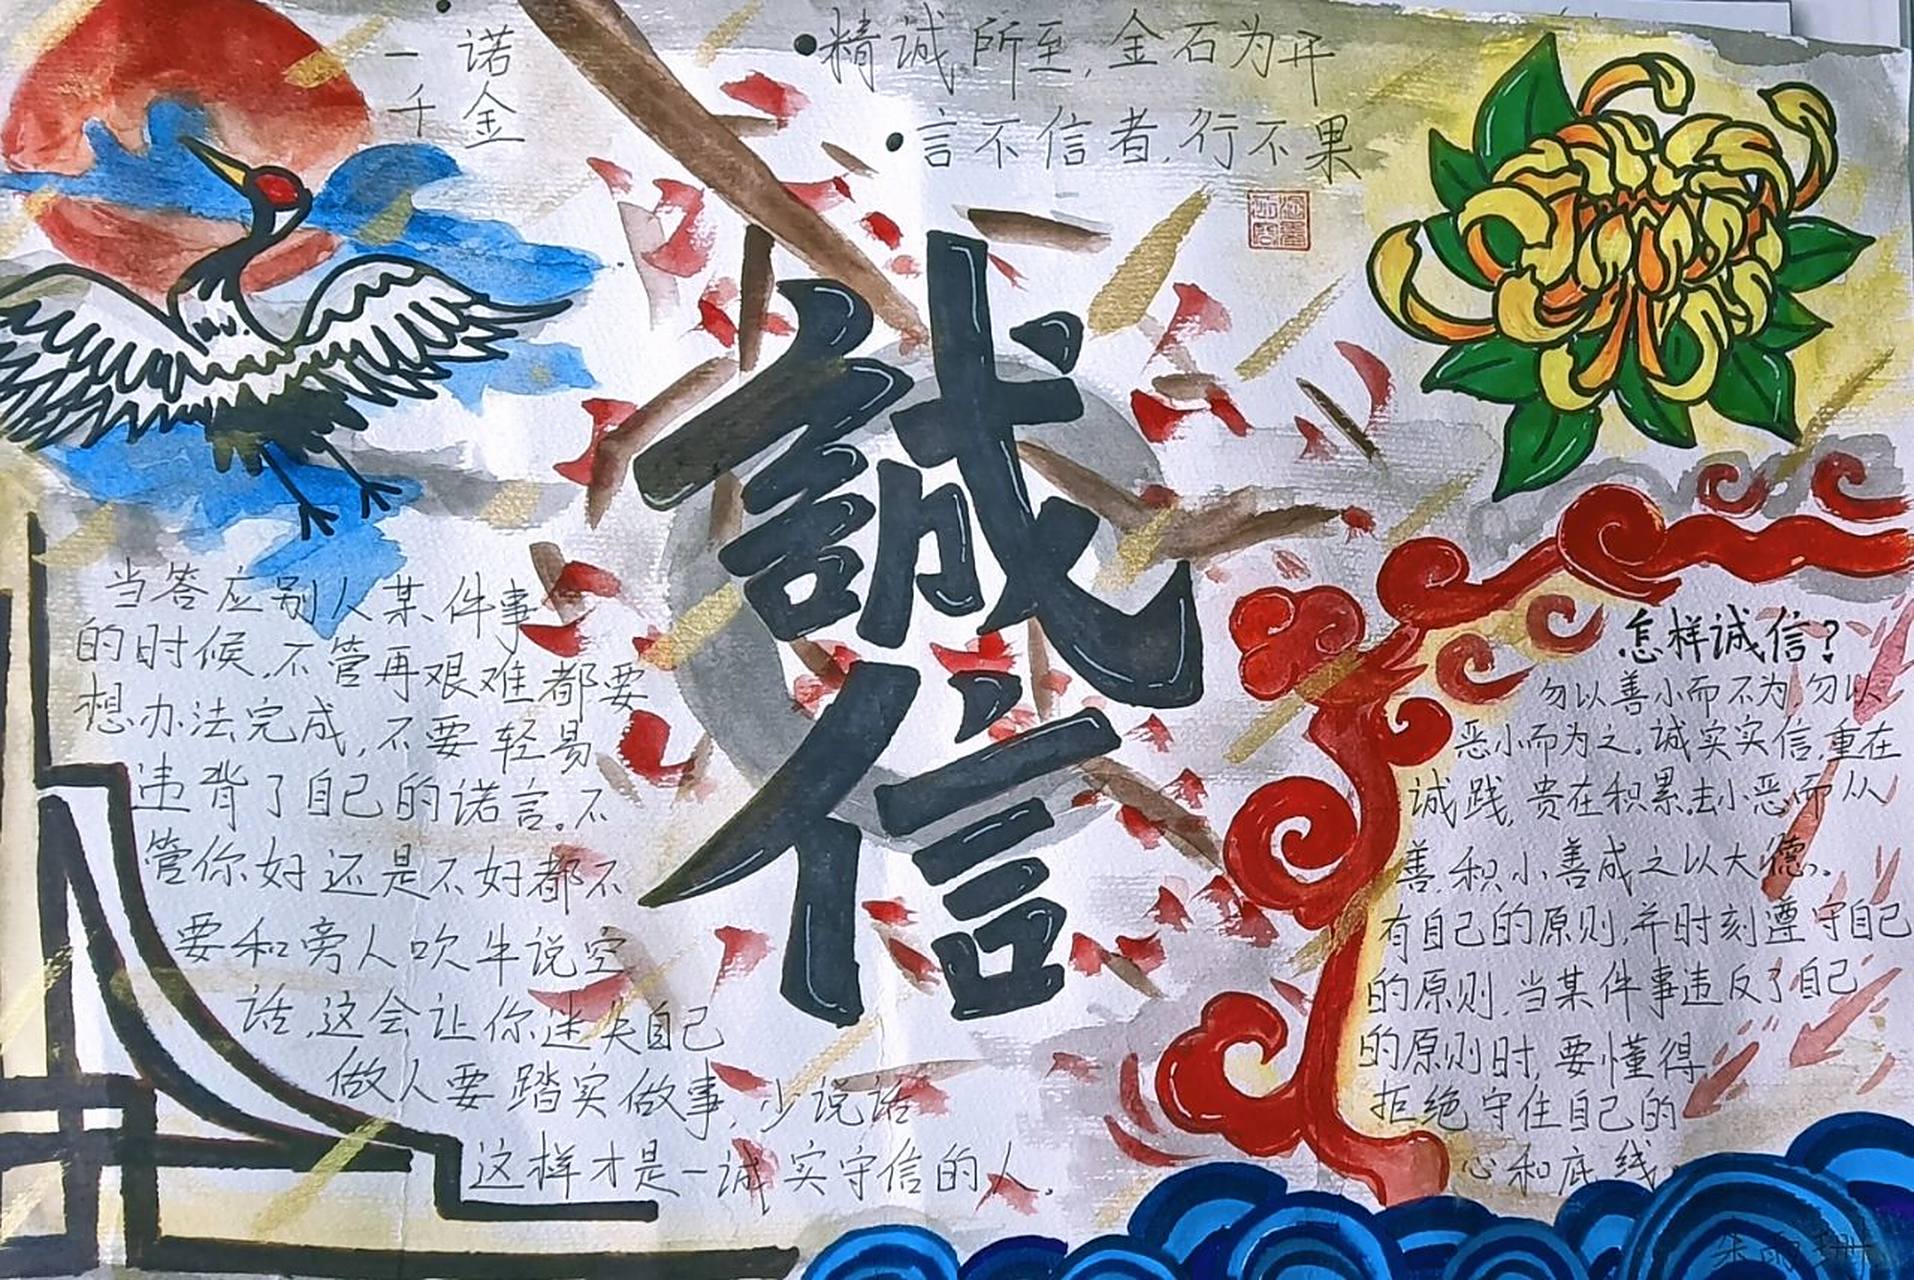 一诺
千金
精诚所至，金石为开
言不信者，行不果
誠
信
当答应别人某件事
的时候，不管再艰难都要
想办法完成，不要轻易
违背了自己的诺言。不
管你好还是不好都不
要和旁人吹牛说空
话，这会让你迷失自己
做人要踏实做事，少说话
这样才是一诚实守信的人。
怎样诚信？
勿以善小而不为，勿以
恶小而为之。诚实实信，重在
诚践，贵在积累，去小恶而从
善，积小善成之以大德。
有自己的原则，并时刻遵守自己
的原则，当某件事违反了自己
的原则时，要懂得
拒绝守住自己的
心和底线。
朱雨珊